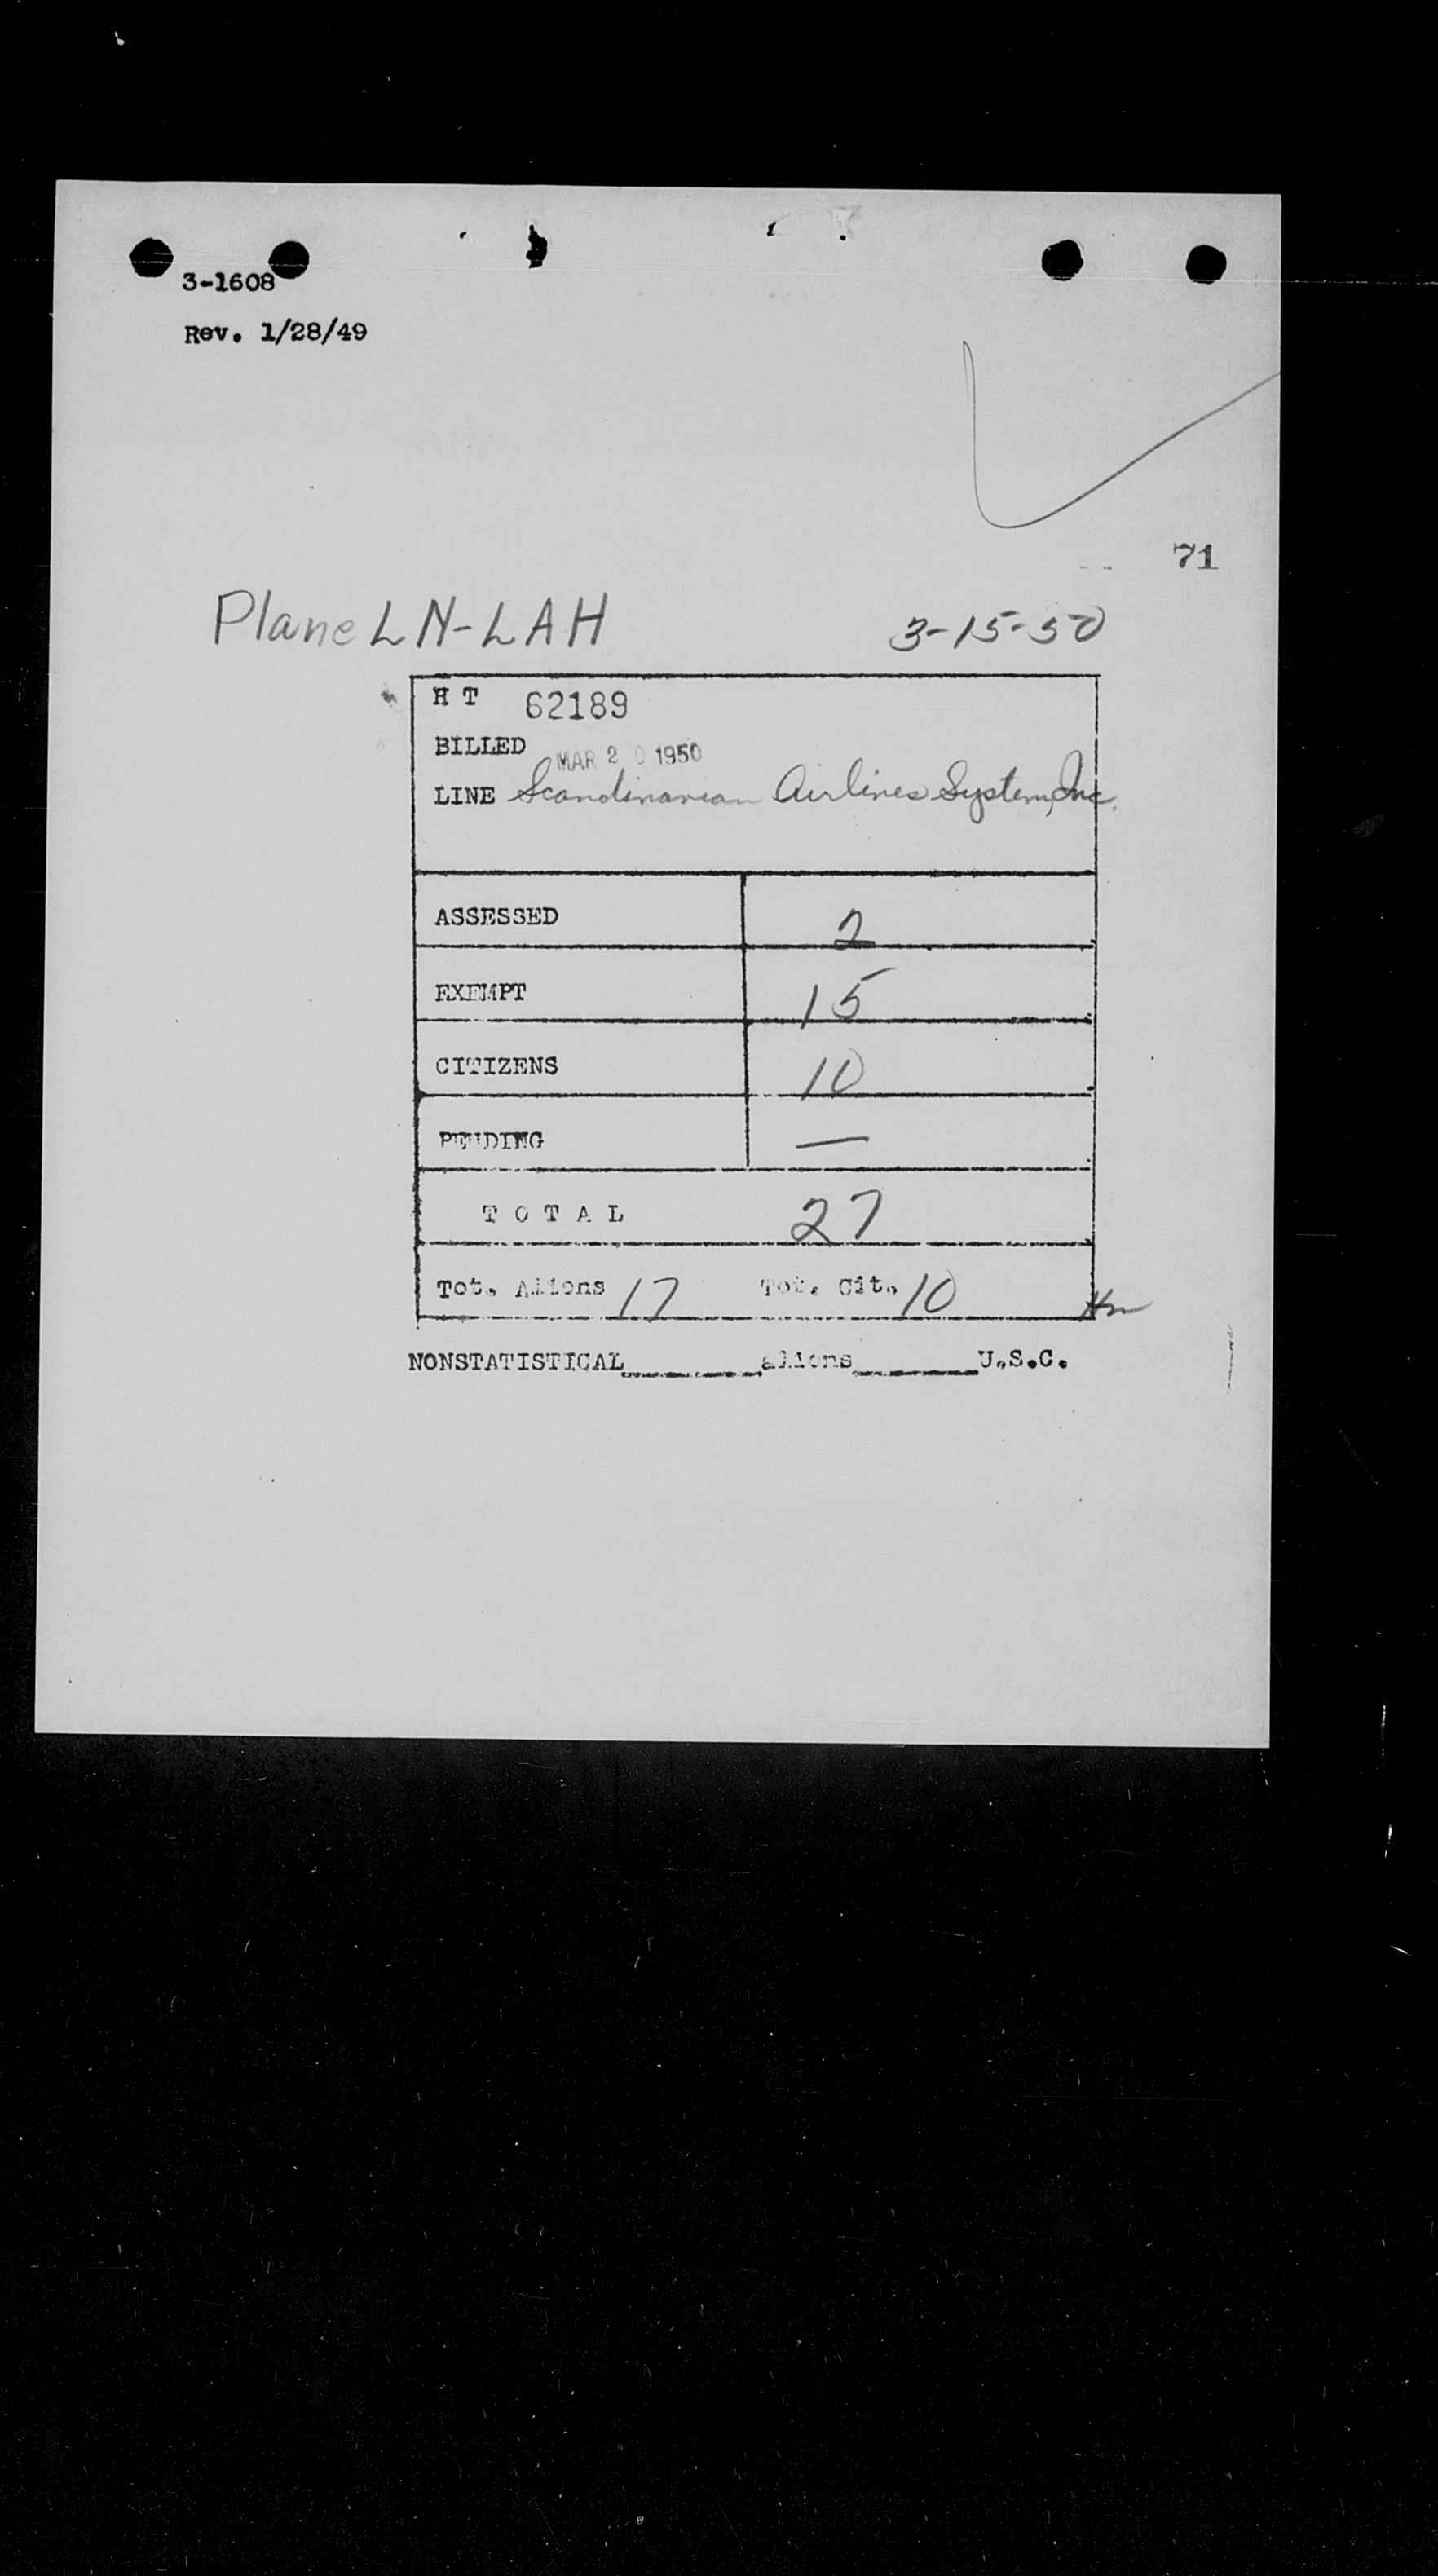 3-1608
Rev. 1/28/49
71
Plane LN-LAH 3-15-50
H T 62189
BILLED MAR 20 1950
LINE Scandinavian Airlines System, Inc.
ASSESSED 2
EXEMPT 15
CITIZENS 10
PENDING —
T O T A L 27
Tot. Aliens 17 Tot. Cit. 10
NONSTATISTICAL______aliens______U.S.C.